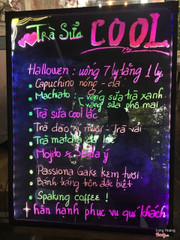 Trà Sữa COOL
Hallowen : uống 7 ly tặng 1 ly.
Capuchino nóng - đá
Machato : vòng sữa trà xanh
vòng sữa phô mai
Trà sữa cool lắc
Trà đào - Trà vải
Trà matcha
Mojito
Passiona Cake kem tươi
Bánh tráng trộn đặc biệt
Spaking coffee !
hân hạnh phục vụ quí khách